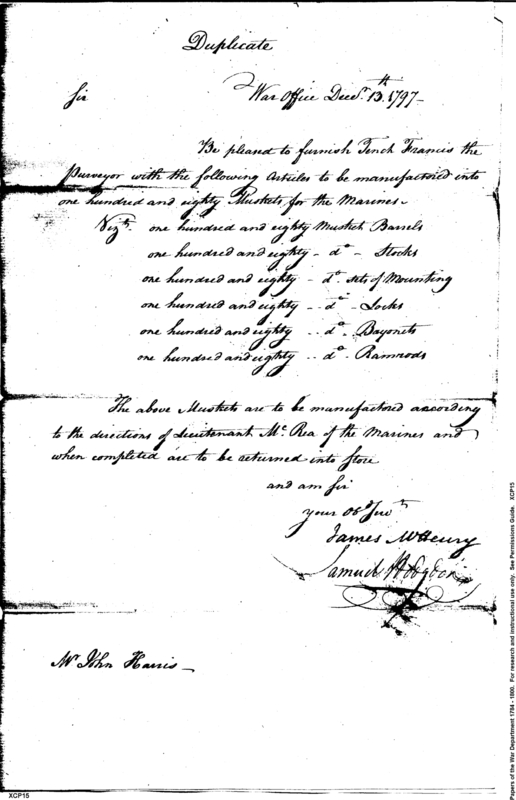 Duplicate
Sir
War Office Decr. 13th. 1797-
Be pleased to furnish Tench Francis the
Purveyor with the following Articles to be manufactored into
one hundred and eighty Muskets for the Marines
Vizt. one hundred and eighty Musket Barrels
one hundred and eighty - do - Stocks
one hundred and eighty - do. sets of Mounting
one hundred and eighty .. do - Locks
one hundred and eighty .. do. Bayonets
one hundred and eighty .. do. Ramrods
The above Muskets are to be manufactored according
to the directions of Lieutenant Mc. Rea of the Marines and
when completed are to be returned into Store
and am Sir
your Obd Servt
James McHenry
Samuel Hodgdon
Mr. John Harris -
XCP15
Papers of the War Department 1784 - 1800. For research and instructional use only. See Permissions Guide. XCP15